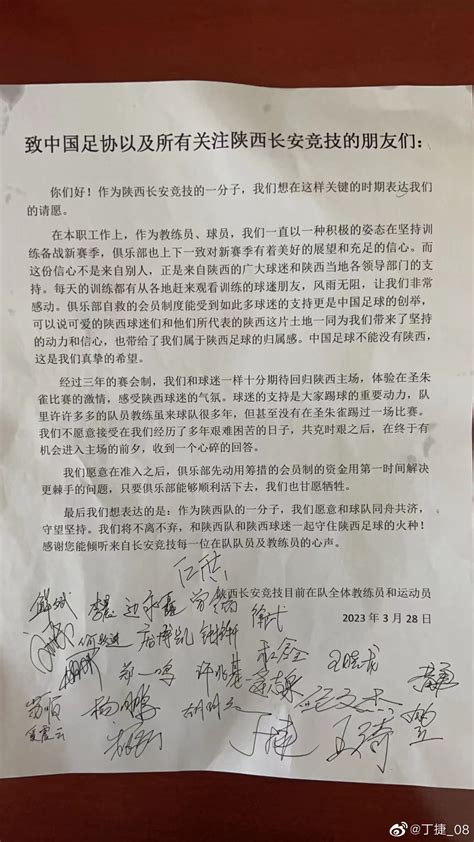 致中国足协以及所有关注陕西长安竞技的朋友们：
你们好！作为陕西长安竞技的一分子，我们想在这样关键的时期表达我们
的请愿。
在本职工作上，作为教练员、球员，我们一直以一种积极的姿态在坚持训
练备战新赛季，俱乐部也上下一致对新赛季有着美好的展望和充足的信心。而
这份信心不是来自别人，正是来自陕西的广大球迷和陕西当地各领导部门的支
持。每天的训练都有从各地赶来观看训练的球迷朋友，风雨无阻，让我们非常
感动。俱乐部自救的会员制度能受到如此多球迷的支持更是中国足球的创举，
可以说可爱的陕西球迷们和他们所代表的陕西这片土地一同为我们带来了坚持
的动力和信心，也带给了我们属于陕西足球的归属感。中国足球不能没有陕西，
这是我们真挚的希望。
经过三年的赛会制，我们和球迷一样十分期待回归陕西主场，体验在圣朱
雀比赛的激情，感受陕西球迷的气氛。球迷的支持是大家踢球的重要动力，队
里许许多多的队员教练虽来球队很多年，但甚至没有在圣朱雀踢过一场比赛。
我们不愿意接受在我们经历了多年艰难困苦的日子，共克时艰之后，在终于有
机会进入主场的前夕，收到一个心碎的回答。
我们愿意在准入之后，俱乐部先动用筹措的会员制的资金用第一时间解决
更棘手的问题，只要俱乐部能够顺利活下去，我们也甘愿牺牲。
最后我们想表达的是：作为陕西队的一分子，我们愿意和球队同舟共济，
守望坚持。我们将不离不弃，和陕西队和陕西球迷一起守住陕西足球的火种！
感谢您能倾听来自长安竞技每一位在队队员及教练员的心声。
陕西长安竞技目前在队全体教练员和运动员
2023 年 3 月 28 日
杨鹏
丁捷
王琦
@丁捷_08